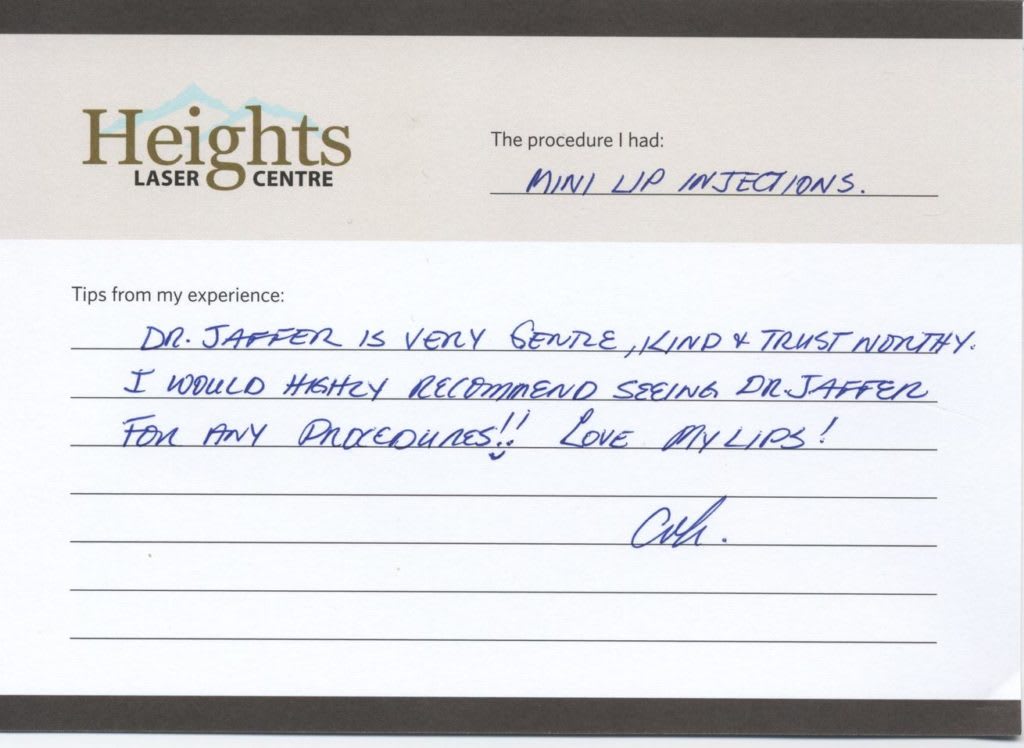 Heights
LASER CENTRE
The procedure I had:
MINI LIP INJECTIONS.
Tips from my experience:
DR. JAFFER IS VERY GENTLE, KIND & TRUST WORTHY.
I WOULD HIGHLY RECOMMEND SEEING DR. JAFFER
FOR ANY PROCEDURES!! LOVE MY LIPS!